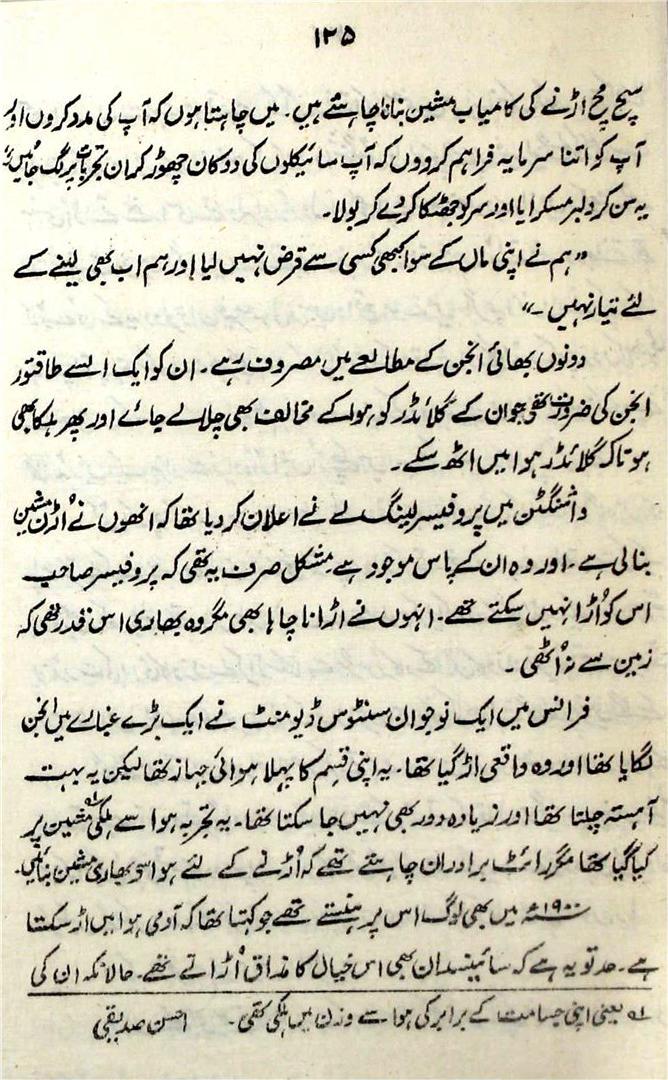 ۱۲۵
سچ مچ اڑنے کی کامیاب مشین بنانا چاہتے ہیں۔ میں چاہتا ہوں کہ آپ کی مدد کروں اور
آپ کو اتنا سرمایہ فراہم کردوں کہ آپ سائیکلوں کی دوکان چھوڑ کر ان تجربات پر لگ جائیں؛
یہ سن کر ولبر مسکرایا اور سر کو جھٹکا کر دے کر بولا۔
”ہم نے اپنی ماں کے سوا کبھی کسی سے قرض نہیں لیا اور ہم اب بھی لینے کے
لئے تیار نہیں ۔“
دونوں بھائی انجن کے مطالعے میں مصروف رہے۔ ان کو ایک ایسے طاقتور
انجن کی ضرورت تھی جو ان کے گلائڈر کو ہوا کے مخالف بھی چلالے جائے اور پھر ہلکا بھی
ہو تاکہ گلائڈر ہوا میں اٹھ سکے۔
واشنگٹن میں پروفیسر لینگ لے نے اعلان کر دیا تھا کہ انھوں نے اُڑن مشین
بنالی ہے۔ اور وہ ان کے پاس موجود ہے مشکل صرف یہ تھی کہ پروفیسر صاحب
اس کو اُڑا نہیں سکتے تھے۔ انہوں نے اڑانا چاہا بھی مگر وہ بھاری اس قدر تھی کہ
زمین سے نہ اُٹھی ۔
فرانس میں ایک نوجوان سنٹوس ڈیومنٹ نے ایک بڑے غبارے میں انجن
لگایا تھا اور وہ واقعی اڑ گیا تھا۔ یہ اپنی قسم کا پہلا ہوائی جہاز تھا لیکن یہ بہت
آہستہ چلتا تھا اور زیادہ دور بھی نہیں جا سکتا تھا۔ یہ تجربہ ہوا سے ہلکی ؎۱ مشین پر
کیا گیا تھا مگر رائٹ برادران چاہتے تھے کہ اُڑنے کے لئے ہوا سے بھاری مشین بنائیں۔
۱۹۰۰ء میں بھی لوگ اس پر ہنستے تھے جو کہتا تھا کہ آدمی ہوا میں اڑ سکتا
ہے۔ حد تو یہ ہے کہ سائینسدان بھی اس خیال کا مذاق اُڑاتے تھے۔ حالانکہ ان کی
؎۱ یعنی اپنی جسامت کے برابر کی ہوا سے وزن میں ہلکی تھی۔ احسن صدیقی